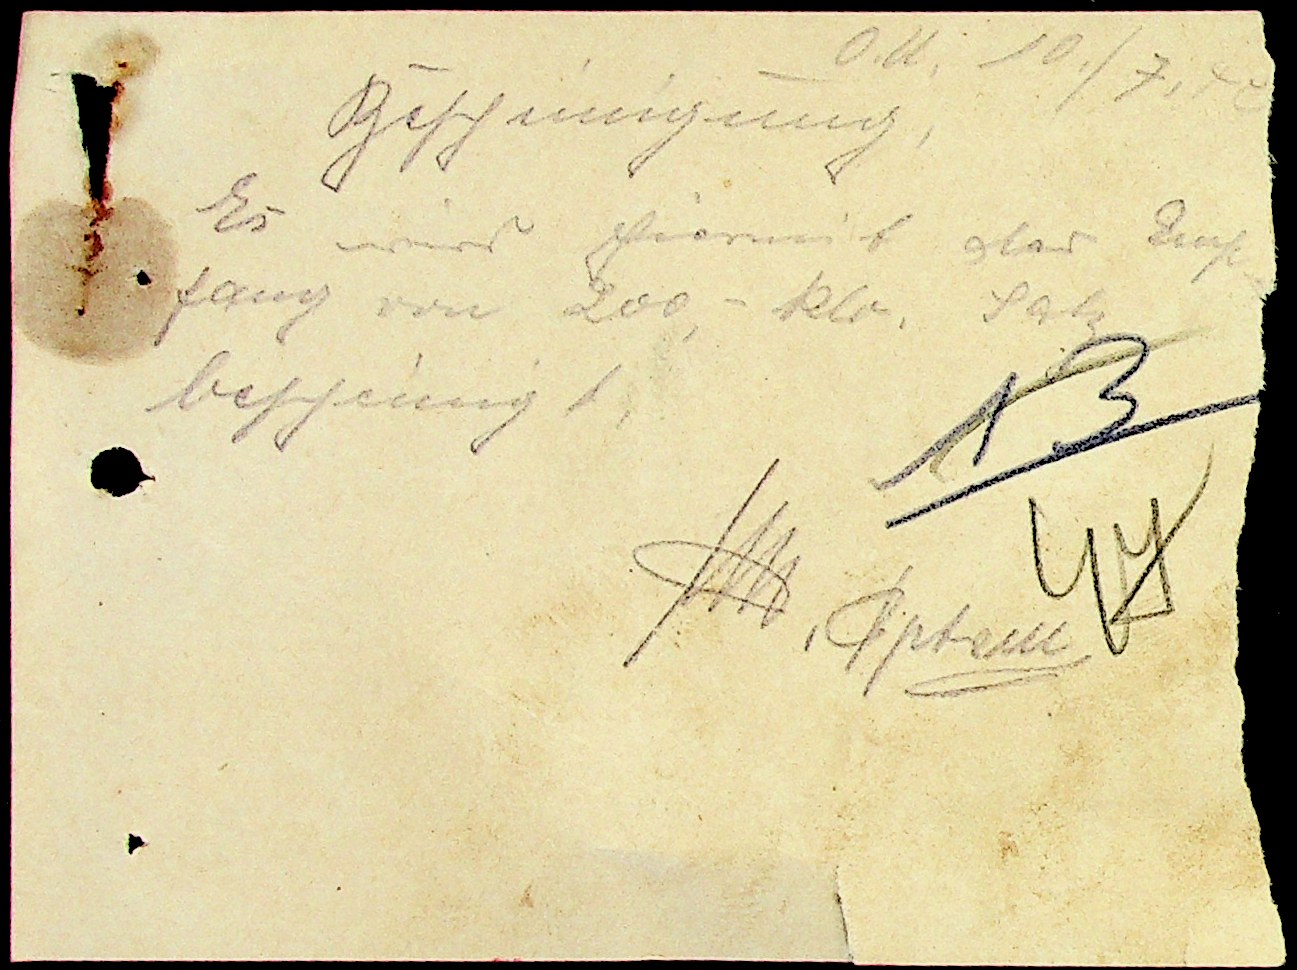 O.U. 10./7.42
Bescheinigung,
Es wird hiermit der Emp-
fang von 200,- Klo. Salz
bescheinigt.
13
44